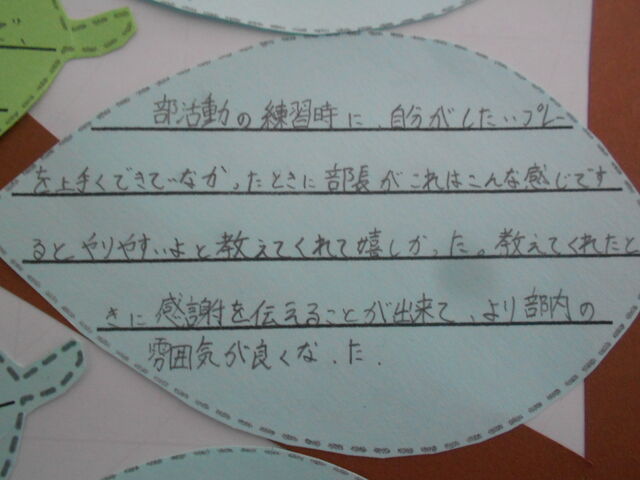 部活動の練習時に、自分がしたいプレー
を上手くできていなかったときに部長がこれはこんな感じです
るとやりやすいよと教えてくれて嬉しかった。教えてくれたと
きに感謝を伝えることが出来て、より部内の
雰囲気が良くなった.